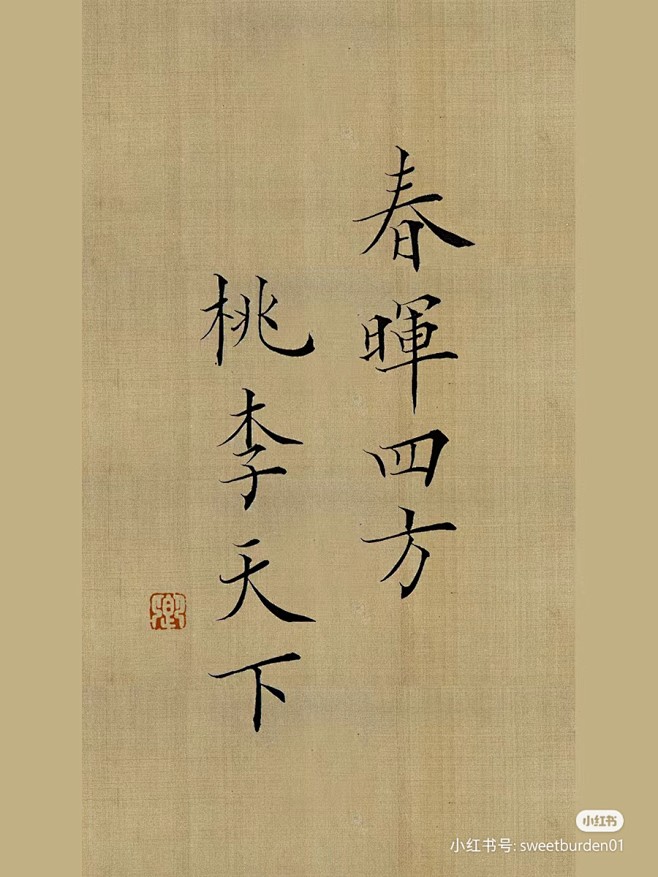 春暉四方
桃李天下
小红书
小红书号: sweetburden01